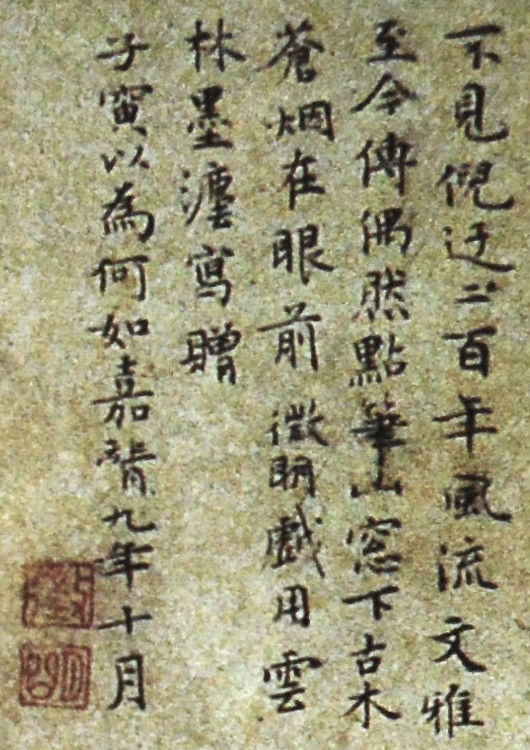 不見倪迂二百年風流文雅
至今傳偶然點筆山窓下古木
蒼烟在眼前徵明戲用雲
林墨瀋寫贈
子寅以為何如嘉靖九年十月
徵
明